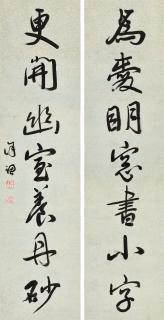 為愛明窗書小字
更開幽室養丹砂